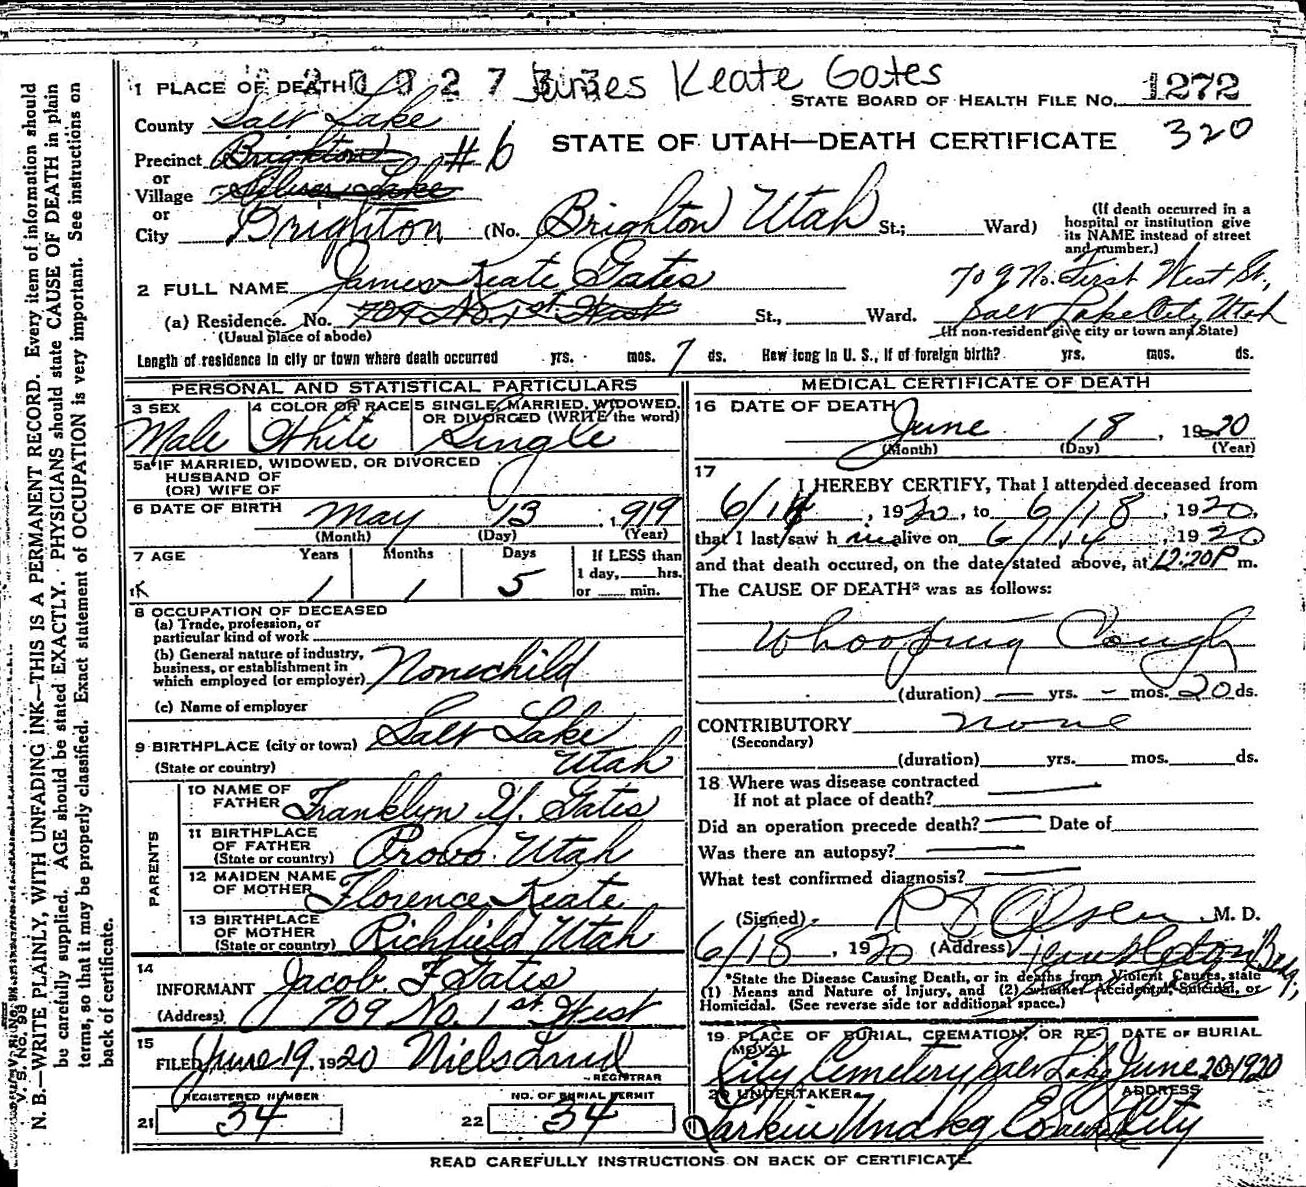 James Keate Gates
1 PLACE OF DEATH
STATE BOARD OF HEALTH FILE NO. 1272
320
County Salt Lake
STATE OF UTAH—DEATH CERTIFICATE
Precinct Brighton #6
or
Village Silver Lake
or
City Brighton (No. Brighton Utah St.; Ward)
(If death occurred in a hospital or institution give its NAME instead of street and number.)
2 FULL NAME James Keate Gates
709 No. First West St., Salt Lake City, Utah
(a) Residence. No. 709 No 1st West St., Ward.
(Usual place of abode)
(If non-resident give city or town and State)
Length of residence in city or town where death occurred yrs. mos. 7 ds. How long in U. S., if of foreign birth? yrs. mos. ds.
PERSONAL AND STATISTICAL PARTICULARS
3 SEX Male
4 COLOR OR RACE White
5 SINGLE, MARRIED, WIDOWED, OR DIVORCED (WRITE the word) Single
5a IF MARRIED, WIDOWED, OR DIVORCED
HUSBAND OF
(OR) WIFE OF
6 DATE OF BIRTH May 13, 1919
(Month) (Day) (Year)
7 AGE Years Months Days If LESS than
1 1 5 1 day, hrs.
or min.
8 OCCUPATION OF DECEASED
(a) Trade, profession, or
particular kind of work
(b) General nature of industry,
business, or establishment in
which employed (or employer) None child
(c) Name of employer
9 BIRTHPLACE (city or town) Salt Lake
(State or country) Utah
PARENTS
10 NAME OF
FATHER Franklyn Y. Gates
11 BIRTHPLACE
OF FATHER
(State or country) Provo Utah
12 MAIDEN NAME
OF MOTHER Florence Keate
13 BIRTHPLACE
OF MOTHER
(State or country) Richfield Utah
14
INFORMANT Jacob F Gates
(Address) 709 No. 1st West
15
FILED June 19, 1920 Niels Lind
REGISTRAR
REGISTERED NUMBER
21 34
NO. OF BURIAL PERMIT
22 34
MEDICAL CERTIFICATE OF DEATH
16 DATE OF DEATH
June 18, 1920
(Month) (Day) (Year)
17
I HEREBY CERTIFY, That I attended deceased from
6/14, 1920, to 6/18, 1920,
that I last saw h im alive on 6/14, 1920
and that death occured, on the date stated above, at 12:20P m.
The CAUSE OF DEATH* was as follows:
Whooping Cough
(duration) — yrs. – mos. 20 ds.
CONTRIBUTORY none
(Secondary)
(duration) yrs. mos. ds.
18 Where was disease contracted
If not at place of death?
Did an operation precede death? Date of
Was there an autopsy?
What test confirmed diagnosis?
(Signed) Olsen M. D.
6/18, 1920 (Address)
*State the Disease Causing Death, or in deaths from Violent Causes, state
(1) Means and Nature of Injury, and (2) whether Accidental, Suicidal, or
Homicidal. (See reverse side for additional space.)
19 PLACE OF BURIAL, CREMATION, OR REMOVAL DATE OF BURIAL
City Cemetery Salt Lake June 20 1920
20 UNDERTAKER ADDRESS
Larkin Undkg Co City
READ CAREFULLY INSTRUCTIONS ON BACK OF CERTIFICATE.
V. S. No. 98
N. B.—WRITE PLAINLY, WITH UNFADING INK—THIS IS A PERMANENT RECORD. Every item of information should
be carefully supplied. AGE should be stated EXACTLY. PHYSICIANS should state CAUSE OF DEATH in plain
terms, so that it may be properly classified. Exact statement of OCCUPATION is very important. See instructions on
back of certificate.